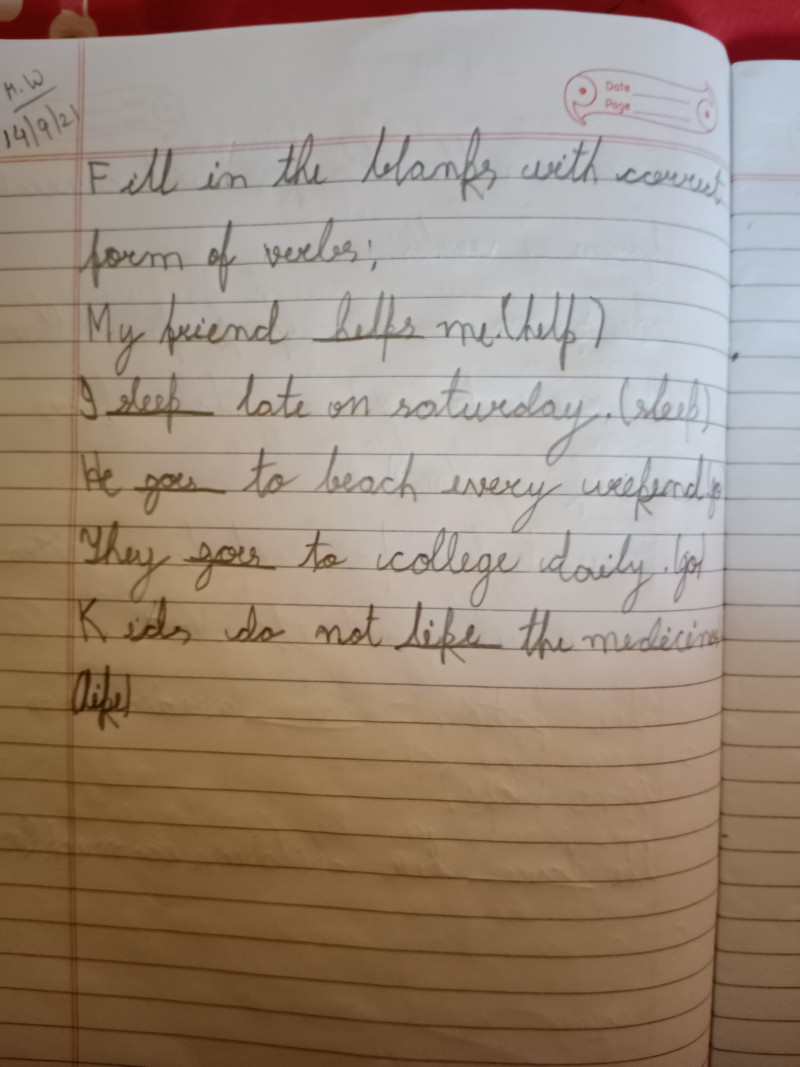 H.W
14/9/21
Date
Page
Fill in the blanks with correct
form of verbs;
My friend helps me. (help)
I sleep late on saturday. (sleep)
He goes to beach every weekend (go
They goes to college daily. (go)
Kids do not like the medicines
(like)